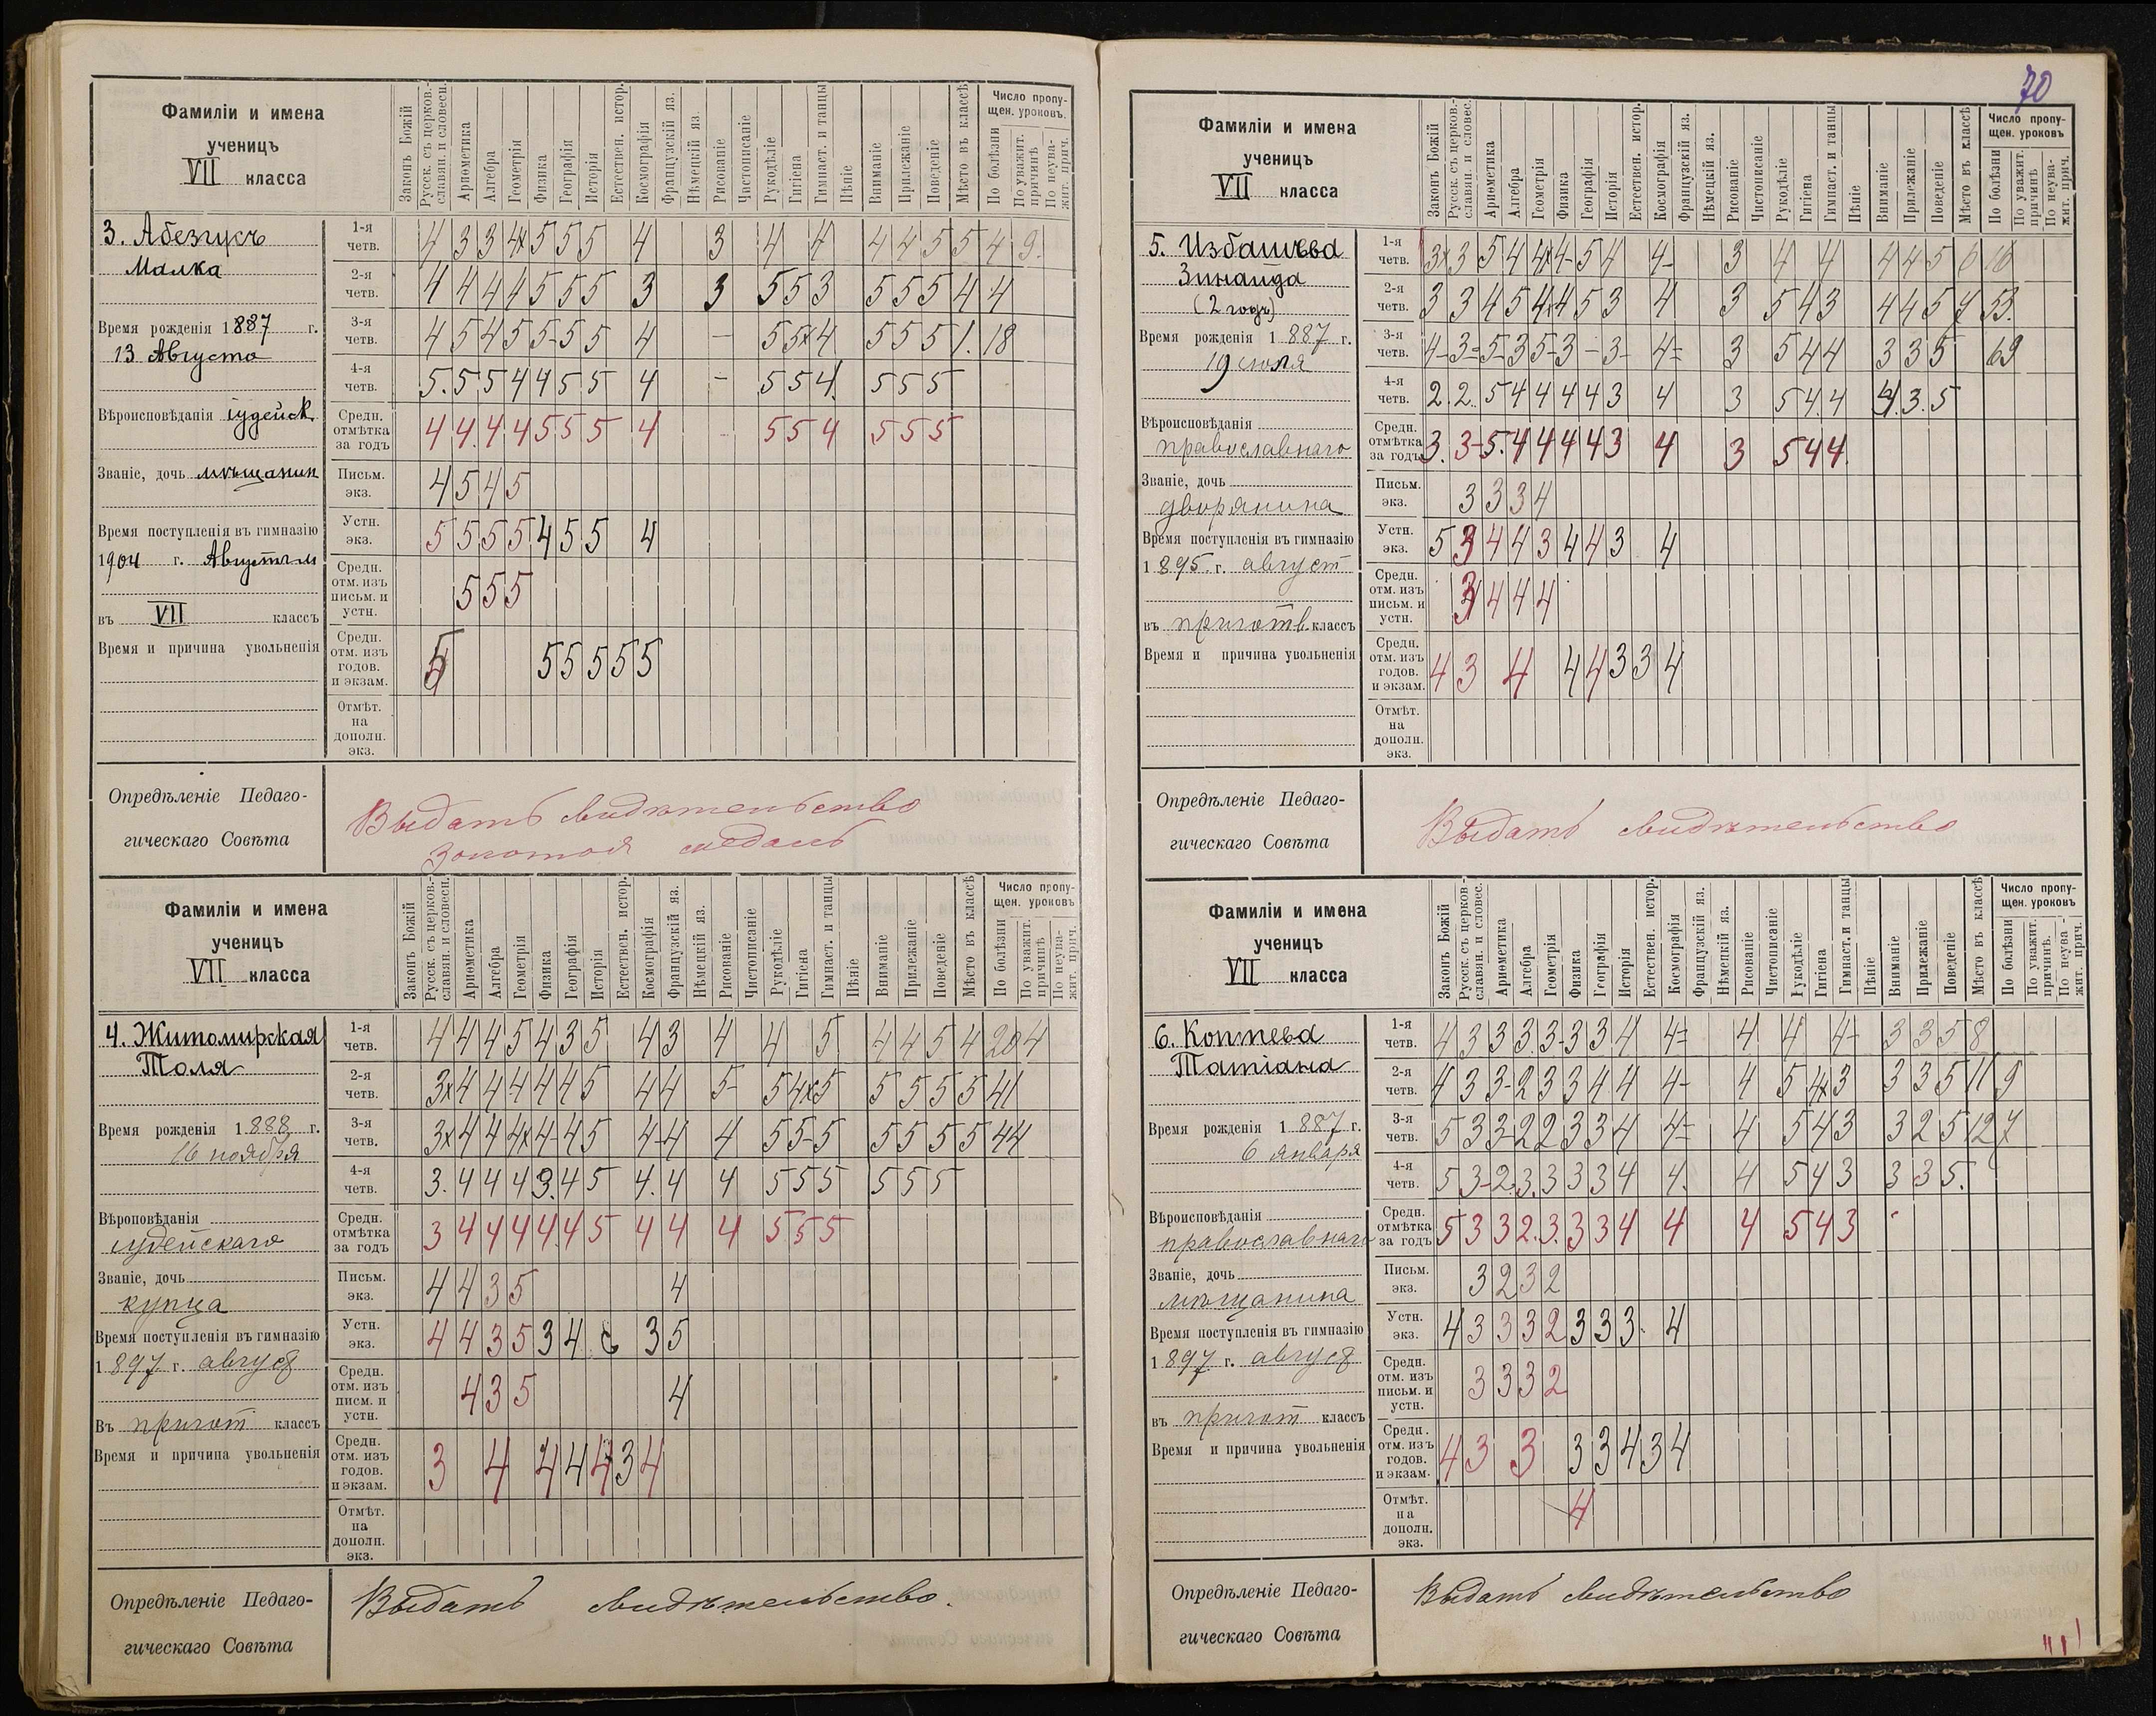 70
Фамиліи и имена
ученицъ
VII класса
Законъ Божій
Русск. съ церков.-
славян. и словесн.
Ариѳметика
Алгебра
Геометрія
Физика
Географія
Исторія
Естествен. истор.
Космографія
Французскій яз.
Нѣмецкій яз.
Рисованіе
Чистописаніе
Рукодѣліе
Гигіена
Гимнаст. и танцы
Пѣніе
Вниманіе
Прилежаніе
Поведеніе
Мѣсто въ классѣ
Число пропу-
щен. уроковъ.
По болѣзни
По уважит.
причинѣ
По неува-
жит. прич.
3. Абезгусъ
Малка
Время рожденія 1887 г.
13 Августа
Вѣроисповѣданія іудейск.
Званіе, дочь мѣщанин
Время поступленія въ гимназію
1904 г. Августъ
въ VII классъ
Время и причина увольненія
1-я
четв. 4 3 3 4x 5 5 5 4 3 4 4 4 4 5 5 4 9.
2-я
четв. 4 4 4 4 5 5 5 3 3 5 5 3 5 5 5 4 4
3-я
четв. 4 5 4 5 5- 5 5 4 — 5 5x 4 5 5 5 1. 18
4-я
четв. 5. 5 5 4 4 5 5 4 — 5 5 4. 5 5 5
Средн.
отмѣтка
за годъ 4 4. 4 4 5 5 5 4 5 5 4 5 5 5
Письм.
экз. 4 5 4 5
Устн.
экз. 5 5 5 5 4 5 5 4
Средн.
отм. изъ
письм. и
устн. 5 5 5
Средн.
отм. изъ
годов.
и экзам. 5 5 5 5 5 5
Отмѣт.
на
дополн.
экз.
Опредѣленіе Педаго-
гическаго Совѣта
Выдать свидѣтельство
золотой медаль
Фамиліи и имена
ученицъ
VII класса
Законъ Божій
Русск. съ церков.-
славян. и словесн.
Ариѳметика
Алгебра
Геометрія
Физика
Географія
Исторія
Естествен. истор.
Космографія
Французскій яз.
Нѣмецкій яз.
Рисованіе
Чистописаніе
Рукодѣліе
Гигіена
Гимнаст. и танцы
Пѣніе
Вниманіе
Прилежаніе
Поведеніе
Мѣсто въ классѣ
Число пропу-
щен. уроковъ
По болѣзни
По уважит.
причинѣ
По неува-
жит. прич.
4. Житомирская
Толя
Время рожденія 1888 г.
16 ноября
Вѣроповѣданія
іудейскаго
Званіе, дочь
купца
Время поступленія въ гимназію
1897 г. август
Въ пригот классъ
Время и причина увольненія
1-я
четв. 4 4 4 5 4 3 5 4 3 4 4 5 4 4 5 4 20 4
2-я
четв. 3x 4 4 4 4 4 5 4 4 5- 5 4x 5 5 5 5 5 41
3-я
четв. 3x 4 4 4x 4- 4 5 4- 4 4 5 5- 5 5 5 5 5 44
4-я
четв. 3. 4 4 4 3. 4 5 4. 4 4 5 5 5 5 5 5
Средн.
отмѣтка
за годъ 3 4 4 4 4 4 5 4 4 4 5 5 5
Письм.
экз. 4 4 3 5 4
Устн.
экз. 4 4 3 5 3 4 3 5
Средн.
отм. изъ
писм. и
устн. 4 3 5 4
Средн.
отм. изъ
годов.
и экзам. 3 4 4 4 4 3 4
Отмѣт.
на
дополн.
экз.
Опредѣленіе Педаго-
гическаго Совѣта
Выдать свидѣтельство.
Фамиліи и имена
ученицъ
VII класса
Законъ Божій
Русск. съ церков.-
славян. и словес.
Ариѳметика
Алгебра
Геометрія
Физика
Географія
Исторія
Естествен. истор.
Космографія
Французскій яз.
Нѣмецкій яз.
Рисованіе
Чистописаніе
Рукодѣліе
Гигіена
Гимнаст. и танцы
Пѣніе
Вниманіе
Прилежаніе
Поведеніе
Мѣсто въ классѣ
Число пропу-
щен. уроковъ
По болѣзни
По уважит.
причинѣ
По неува-
жит. прич.
5. Избашева
Зинаида
(2 годъ)
Время рожденія 1887 г.
19 іюля
Вѣроисповѣданія
православнаго
Званіе, дочь
дворянина
Время поступленія въ гимназію
1895 г. август
въ приготв классъ
Время и причина увольненія
1-я
четв. 3x 3 5 4 4x 4- 5 4 4- 3 4 4 4 4 5 6 16
2-я
четв. 3 3 4 5 4x 4 5 3 4 3 5 4 3 4 4 5 7 53.
3-я
четв. 4- 3= 5- 3 5- 3 - 3- 4= 3 5 4 4 3 3 5 69
4-я
четв. 2. 2. 5 4 4 4 4 3 4 3 5 4. 4 4. 3. 5
Средн.
отмѣтка
за годъ 3. 3- 5. 4 4 4 4 3 4 3 5 4 4.
Письм.
экз. 3 3 3 4
Устн.
экз. 5 3 4 4 3 4 4 3 4
Средн.
отм. изъ
письм. и
устн. 3 4 4 4
Средн.
отм. изъ
годов.
и экзам. 4 3 4 4 4 3 3 4
Отмѣт.
на
дополн.
экз.
Опредѣленіе Педаго-
гическаго Совѣта
Выдать свидѣтельство
Фамиліи и имена
ученицъ
VII класса
Законъ Божій
Русск. съ церков-
славян. и словес.
Ариѳметика
Алгебра
Геометрія
Физика
Географія
Исторія
Естествен. истор.
Космографія
Французскій яз.
Нѣмецкій яз.
Рисованіе
Чистописаніе
Рукодѣліе
Гигіена
Гимнаст. и танцы
Пѣніе
Вниманіе
Прилежаніе
Поведеніе
Мѣсто въ классѣ
Число пропу-
щен. уроковъ
По болѣзни
По уважит.
причинѣ.
По неува-
жит. прич.
6. Коптева
Татіана
Время рожденія 1887 г.
6 января
Вѣроисповѣданія
православнаго
Званіе, дочь
мѣщанина
Время поступленія въ гимназію
1897 г. август
въ пригот классъ
Время и причина увольненія
1-я
четв. 4 3 3 3. 3- 3 3 4 4= 4 4 4- 3 3 5 8
2-я
четв. 4 3 3- 2 3 3 4 4 4- 4 5 4x 3 3 3 5 11 9
3-я
четв. 5 3 3- 2 2 3 3 4 4= 4 5 4 3 3 2 5 12 7
4-я
четв. 5 3- 2. 3. 3 3 3 4 4. 4 5 4 3 3 3 5.
Средн.
отмѣтка
за годъ 5 3 3 2. 3. 3 3 4 4 4 5 4 3
Письм.
экз. 3 2 3 2
Устн.
экз. 4 3 3 3 2 3 3 3 4
Средн.
отм. изъ
письм. и
устн. 3 3 3 2
Средн.
отм. изъ
годов.
и экзам. 4 3 3 3 3 4 3 4
Отмѣт.
на
дополн.
экз. 4
Опредѣленіе Педаго-
гическаго Совѣта
Выдать свидѣтельство